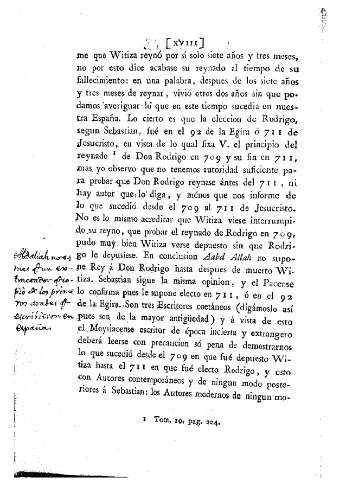 [XVIII]
me que Witiza reynó por sí solo siete años y tres meses,
no por esto dice acabase su reynado al tiempo de su
fallecimiento: en una palabra, despues de los siete años
y tres meses de reynar, vivió otros dos años sin que po-
damos averiguar lo que en este tiempo sucedia en nues-
tra España. Lo cierto es que la eleccion de Rodrigo,
segun Sebastian, fué en el 92 de la Egira ó 711 de
Jesucristo, en vista de lo qual fixa V. el principio del
reynado 1 de Don Rodrigo en 709 y su fin en 711,
mas yo observo que no tenemos autoridad suficiente pa-
ra probar que Don Rodrigo reynase ántes del 711, ni
hay autor que lo diga, y ménos que nos informe de
lo que sucedió desde el 709 al 711 de Jesucristo.
No es lo mismo acreditar que Witiza viese interrumpi-
do su reyno, que probar el reynado de Rodrigo en 709,
pudo muy bien Witiza verse depuesto sin que Rodri-
go le depusiese. En conclusion Aabd Allah no supo-
ne Rey á Don Rodrigo hasta despues de muerto Wi-
tiza. Sebastian sigue la misma opinion, y el Pacense
lo confirma pues le supone electo en 711, ó en el 92
de la Egira. Son tres Escritores coetáneos (digámoslo así
pues son de la mayor antigüedad) y á vista de esto
el Moysiacense escritor de época incierta y extrangero
deberá leerse con precaucion só pena de demostrarnos
lo que sucedió desde el 709 en que fué depuesto Wi-
tiza hasta el 711 en que fué electo Rodrigo, y esto
con Autores contemporáneos y de ningun modo poste-
riores á Sebastian: los Autores modernos de ningun mo-
1 Tom. 10. pag. 224.
Abdiiah no es
mas q̃ un es-
de los prime
ros arabes q̃
escribieron en
españa.